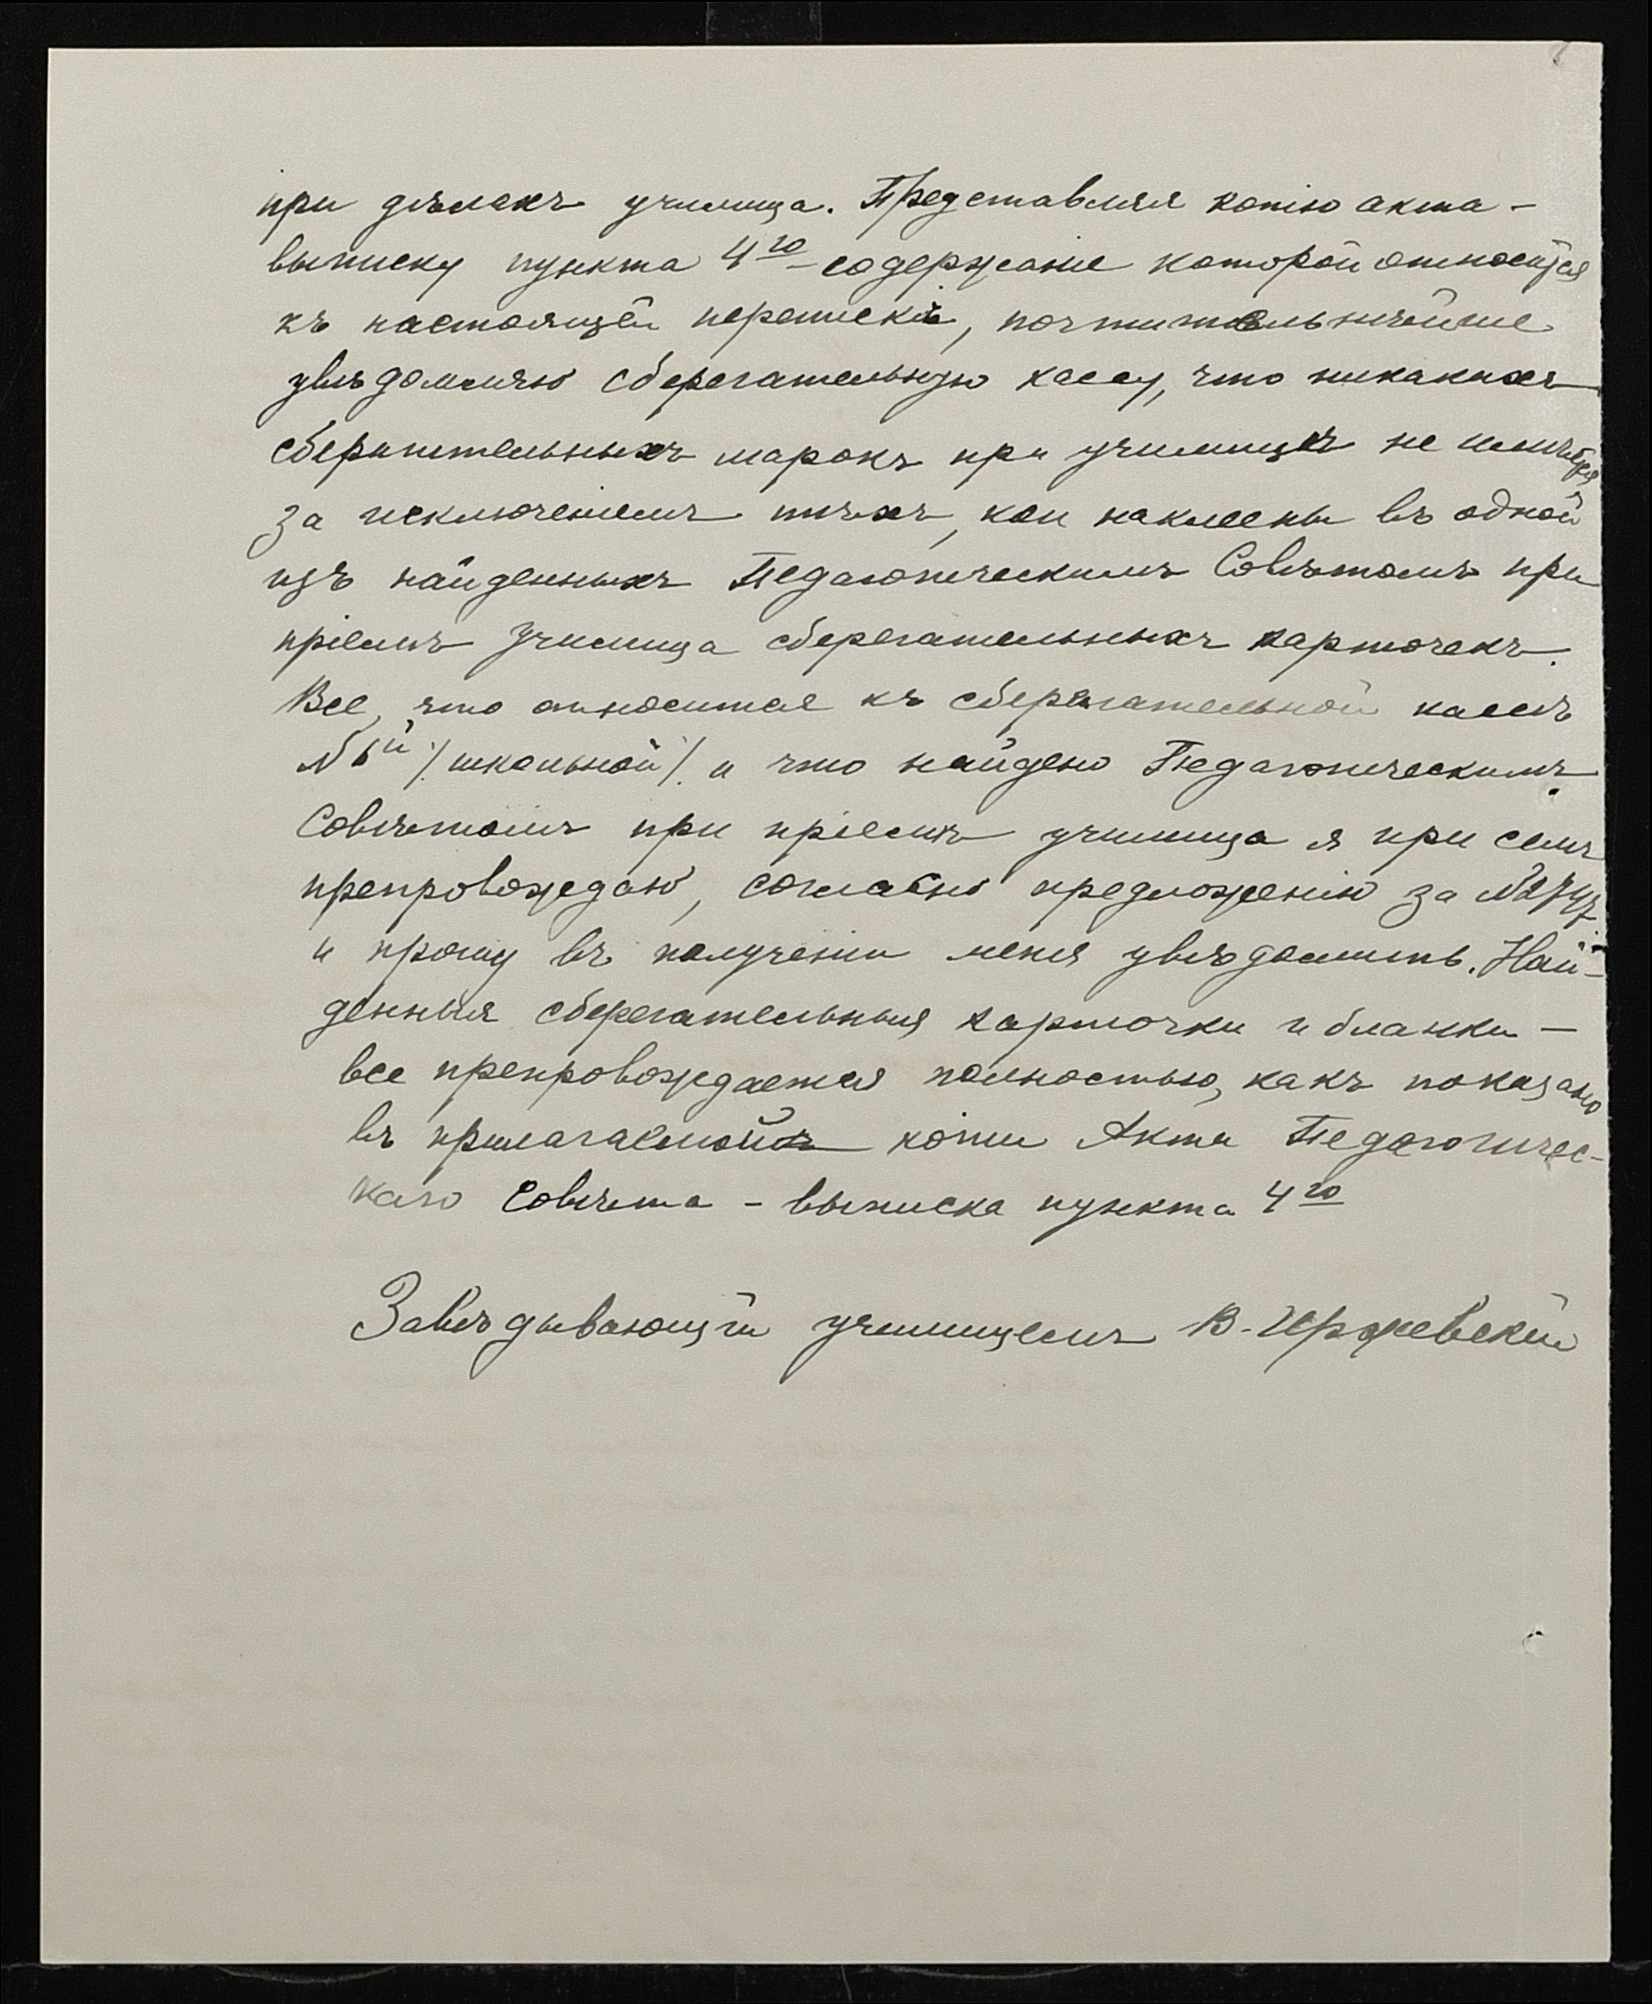 при дѣлахъ училища. Представляя копію акта –
выписку пункта 4го – содержаніе которой относится
къ настоящей перепискѣ, почтительнѣйше
увѣдомляю сберегательную кассу, что никакихъ
сберегательныхъ марокъ при училищѣ не имѣется,
за исключеніемъ тѣхъ, кои наклеены въ одной
изъ найденныхъ Педагогическимъ Совѣтомъ при
пріемѣ училища сберегательныхъ карточекъ.
Все, что относится къ сберегательной кассѣ
/школьной/ и что найдено Педагогическимъ
Совѣтомъ при пріемѣ училища я при семъ
препровождаю, согласно предложенію за №
и прошу въ полученіи меня увѣдомить. Най-
денныя сберегательныя карточки и бланки –
все препровождается полностью, какъ показано
въ прилагаемой копіи Акта Педагогичес-
каго Совѣта – выписка пункта 4го
Завѣдывающій училищемъ В.